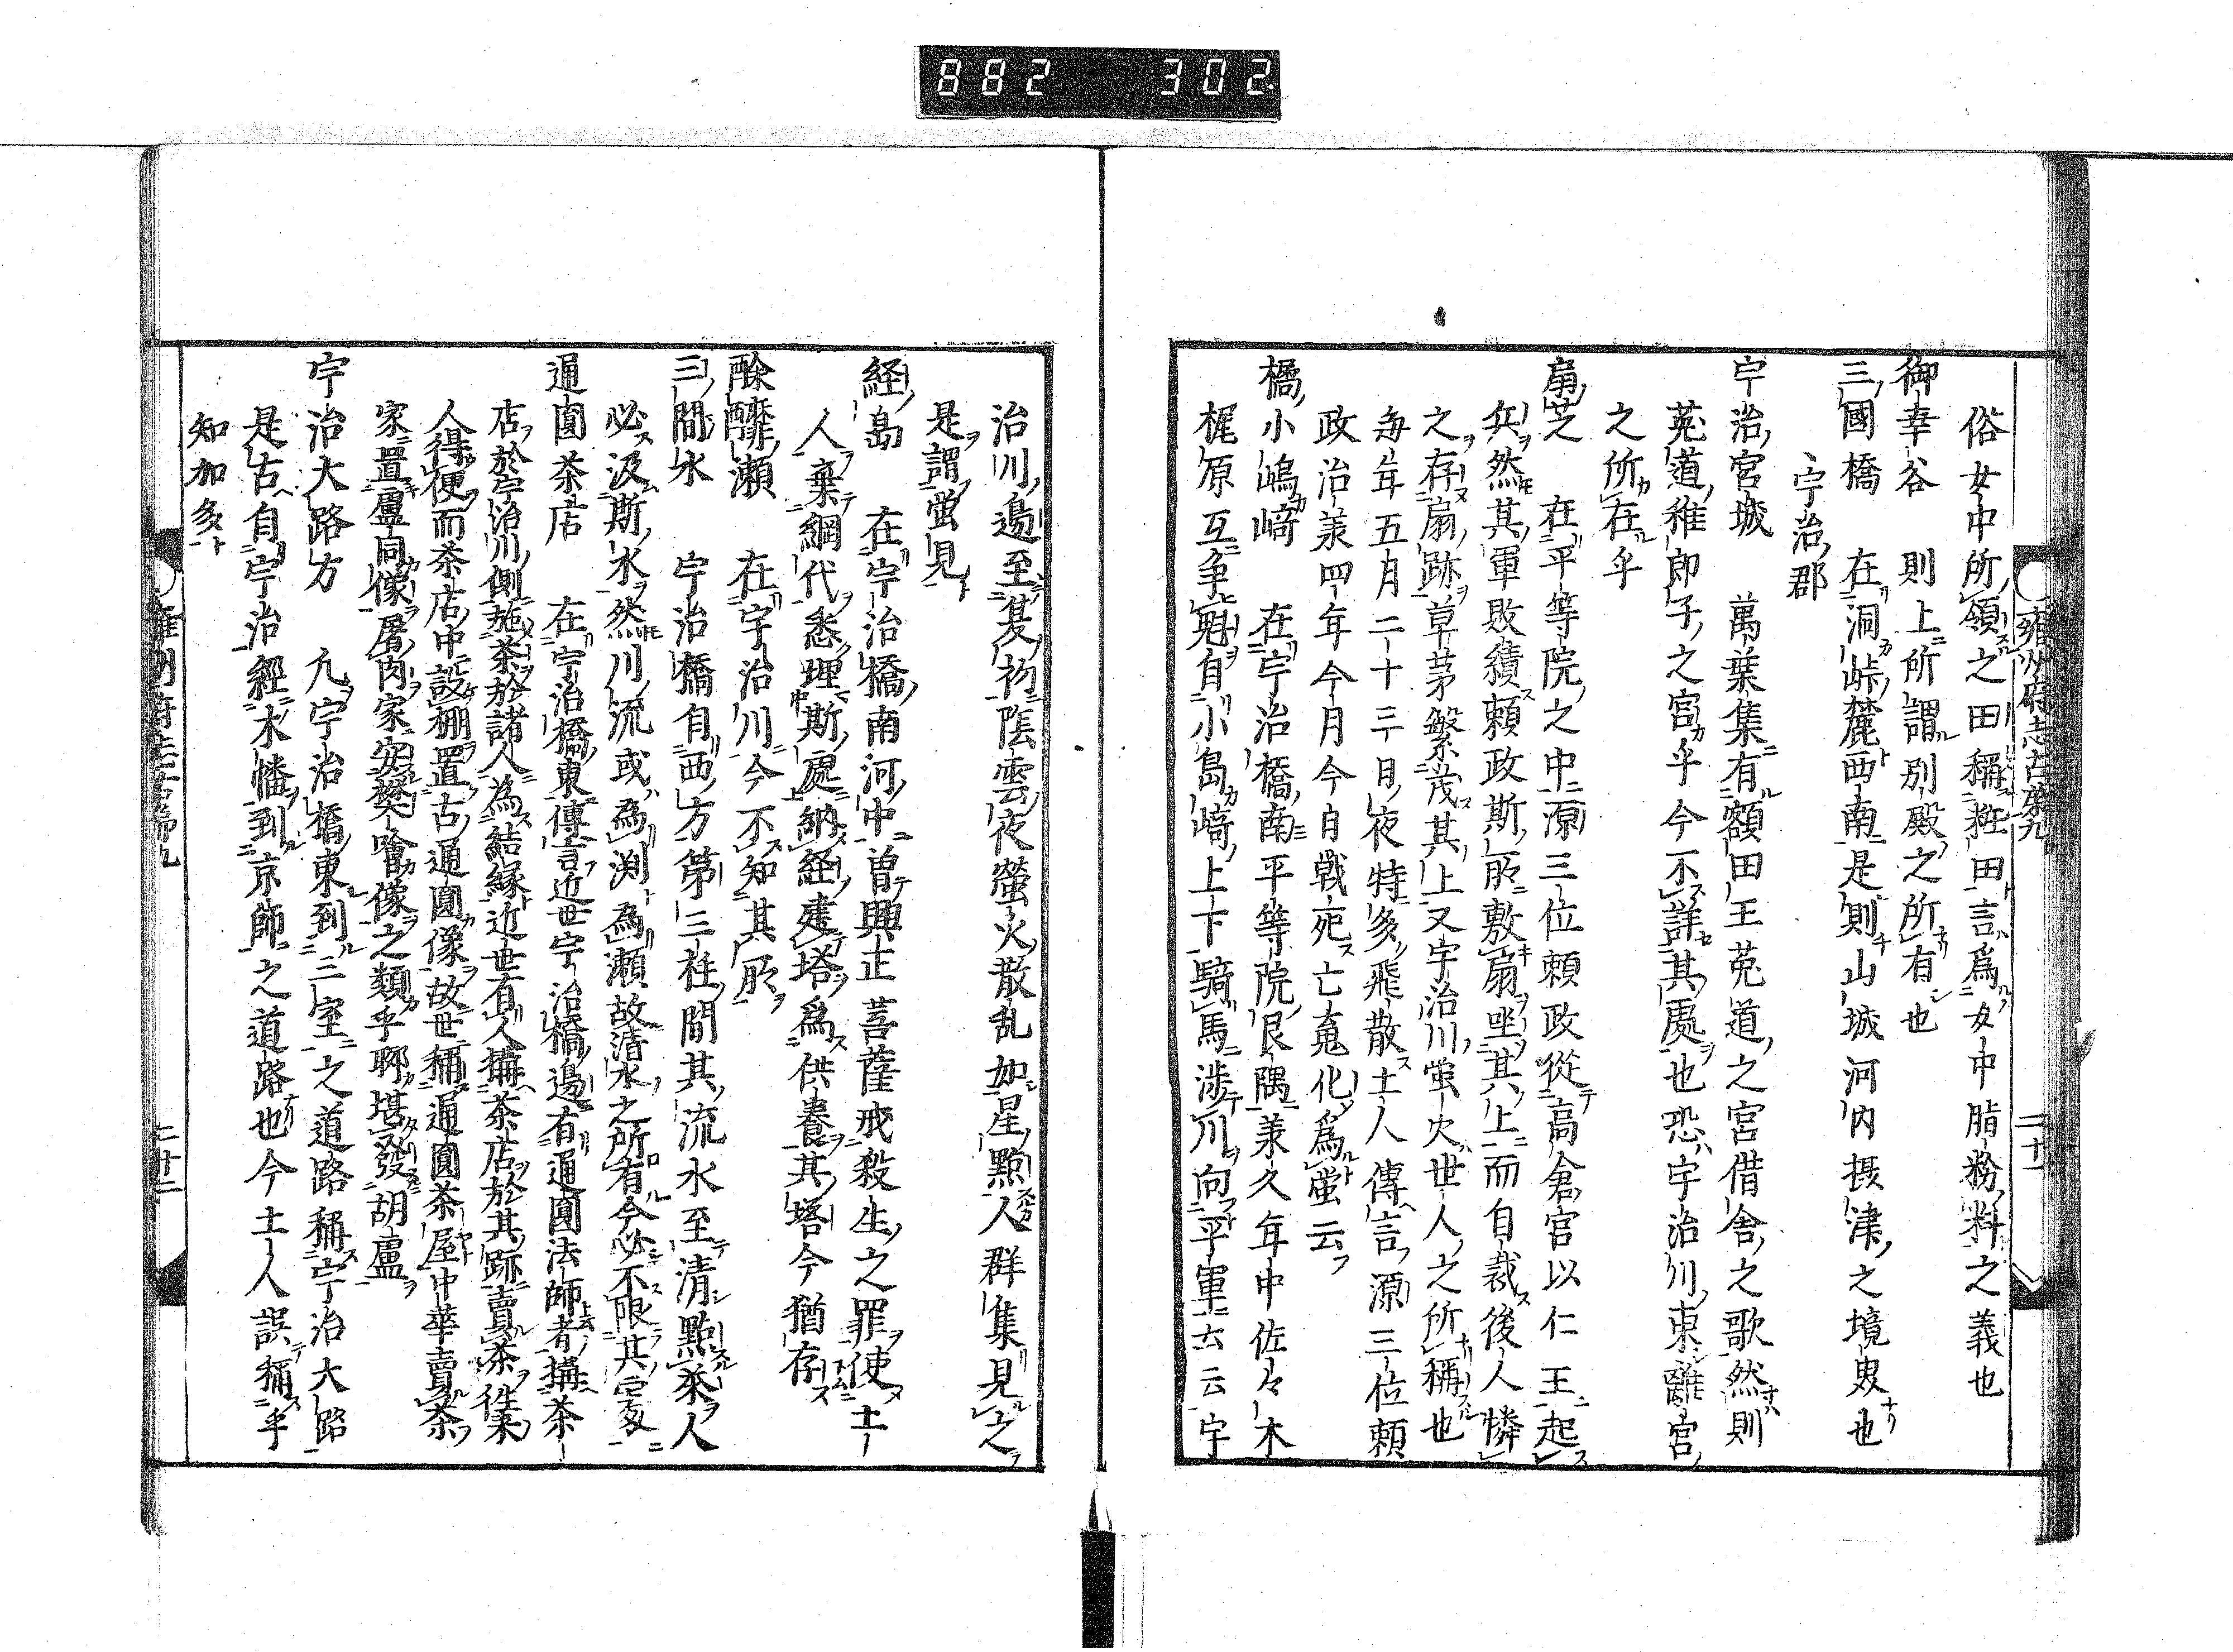 882 302
雍州府志古蹟九
二十一
俗女中所領之田稱粧田言為女中脂粉料之義也
御幸谷 則上所謂別殿之所有也
三國橋 在洞峠麓西南是則山城河內摂津之境界也
宇治郡
宇治宮城 萬葉集有額田王莵道之宮借舎之歌然則
莵道稚郎子之宮乎今不詳其處也恐宇治川東離宮
之所在乎
扇芝 在平等院之中源三位頼政從高倉宮以仁王起
兵然其軍敗績頼政斯所敷扇坐其上而自裁後人憐
之存扇跡草茅繁茂其上又宇治川蛍火世人之所稱也
毎年五月二十三日夜特多飛散土人傳言源三位頼
政治羕四年今月今日戦死亡䰟化為蛍云
橘小嶋﨑 在宇治橋南平等院艮隅羕久年中佐々木
梶原互争魁自小島﨑上下騎馬渉川向平軍云云宇
治川邉至夏初陰雲夜螢火散乱如星點人群集見之
是謂蛍見
経島 在宇治橋南河中曽興正菩薩戒殺生之罪使土
人棄綱代悉埋斯處納経建塔為供養其塔今猶存
酴醿瀬 在宇治川今不知其所
三間水 宇治橋自西方第三柱間其流水至清點茶人
必汲斯水然川流或為渕為瀬故清水之所有今必不限其室
通圓茶店 在宇治橋東傳言近世宇治橋邉有通圓法師者搆茶
店於宇治川側施茶於諸人為結縁近世有人搆茶店於其跡賣茶徃来
人得便而茶店中設棚置古通圓像故世稱通圓茶屋中華賣茶
家置盧同像屠肉家安樊噲像之類乎聊堪發胡盧
宇治大路方 凢宇治橋東到三室之道路稱宇治大路
是古自宇治經木幡到京師之道路也今土人誤稱乎
知加多
雍州府志古蹟九
二十二